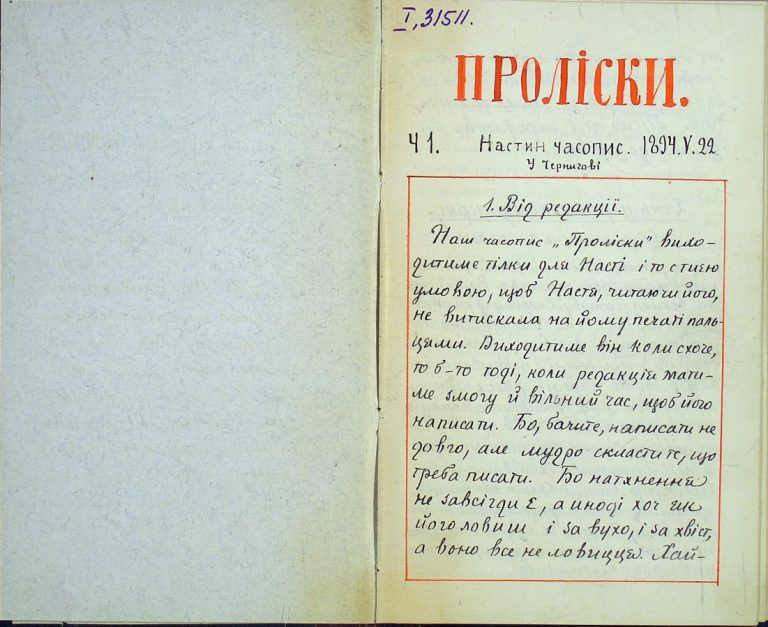 I, 31511.
ПРОЛІСКИ.
Ч 1. Настин часопис. 1894.V.22.
У Чернигові
1. Від редакції.
Наш часопис „Проліски" вихо-
дитиме тілки для Насті і то с тиею
умовою, щоб Настя, читаючи його,
не витискала на йому печаті паль-
цями. Виходитиме він коли схоче,
то б-то тоді, коли редакція мати-
ме змогу й вільний час, щоб його
написати. Бо, бачите, написати не
довго, але мудро скласти те, що
треба писати. Бо натхнення
не завсігди є, а иноді хоч як
його ловиш і за вухо, і за хвіст,
а воно все не ловицця. Хай-